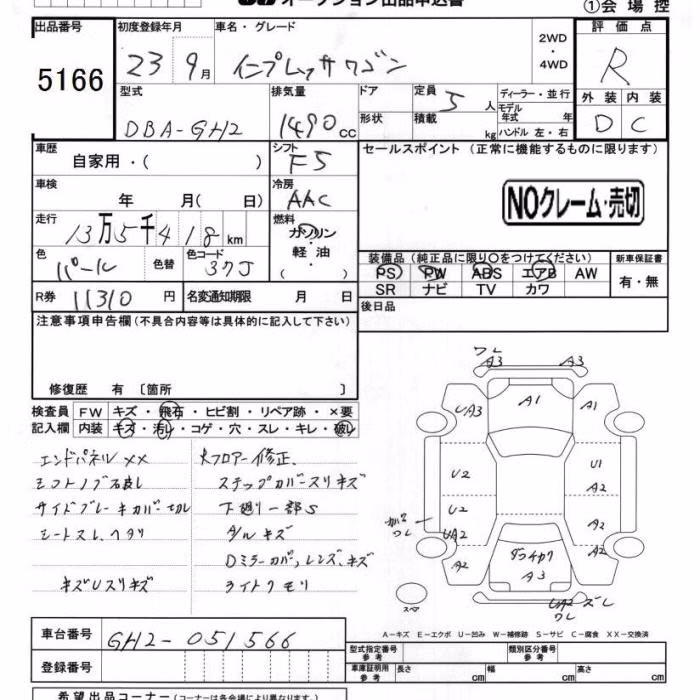 オークション出品申込書
①会場控
出品番号 初度登録年月 車名・グレード 2WD・4WD 評価点
5166 23 9月 インプレッサワゴン R
型式 排気量 ドア 定員 ディーラー・並行 外装 内装
DBA-GH2 1490cc 5人 モデル年式 年 D C
形状 積載 kg ハンドル 左・右
車歴 シフト セールスポイント (正常に機能するものに限ります)
自家用・( ) F5
車検 冷房
年 月( 日) AAC NOクレーム・売切
走行 燃料
13万5千418km ガソリン・軽油・( )
色 色替 色コード 装備品 (純正品に限り○をつけてください) 新車保証書
パール 37J PS PW ABS エアB AW 有・無
SR ナビ TV カワ
R券 11310円 名変通知期限 月 日 後日品
注意事項申告欄 (不具合内容等は具体的に記入して下さい)
修復歴 有 〔箇所 〕
検査員記入欄 FW キズ・飛石・ヒビ割・リペア跡・×要
内装 キズ・汚レ・コゲ・穴・スレ・キレ・破レ
エンドパネルXX
シフトノブ不良し
サイドブレーキカバー切レ
シートスレ、ヘタリ
キズUスリキズ
大フロアー修正、
ステップカバースリキズ
下廻り一部S
タルキズ
Dミラーカバー、レンズ、キズ
ライトクモリ
ワレ
A3 A3
UA3 A1 A1
U2 U1
A2
U2 A2
ワレ UA2
A2 A2
ダッチカワ
A3
スペア
UA2 ズレ
ワレ
A-キズ E-エクボ U-凹み W-補修跡 S-サビ C-腐食 XX-交換済
車台番号 GH2-051566
登録番号
型式指定番号 参考 類別区分番号 参考
車庫証明用 参考 長さ cm 幅 cm 高さ cm
希望出品コーナー (コーナーは各会場により異なります。)